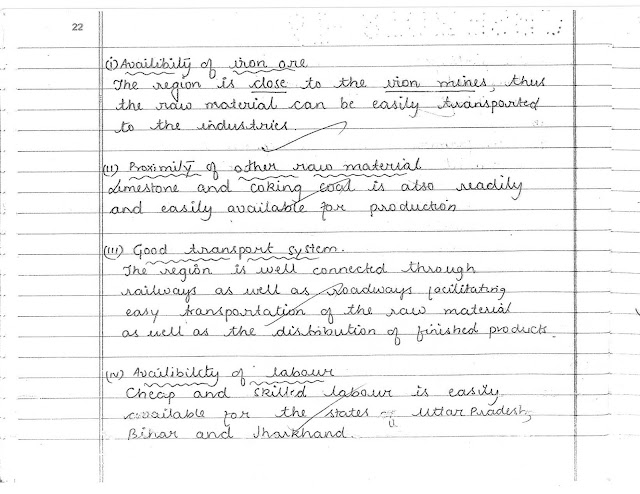 22
(i) Availibity of iron ore
The region is close to the iron mines, thus
the raw material can be easily transported
to the industries.
(ii) Proximity of other raw material
Limestone and coking coal is also readily
and easily available for production
(iii) Good transport system.
The region is well connected through
railways as well as roadways facilitating
easy transportation of the raw material
as well as the distribution of finished product.
(iv) Availibility of labour
Cheap and skilled labour is easily
available for the states of Uttar Pradesh,
Bihar and Jharkhand.